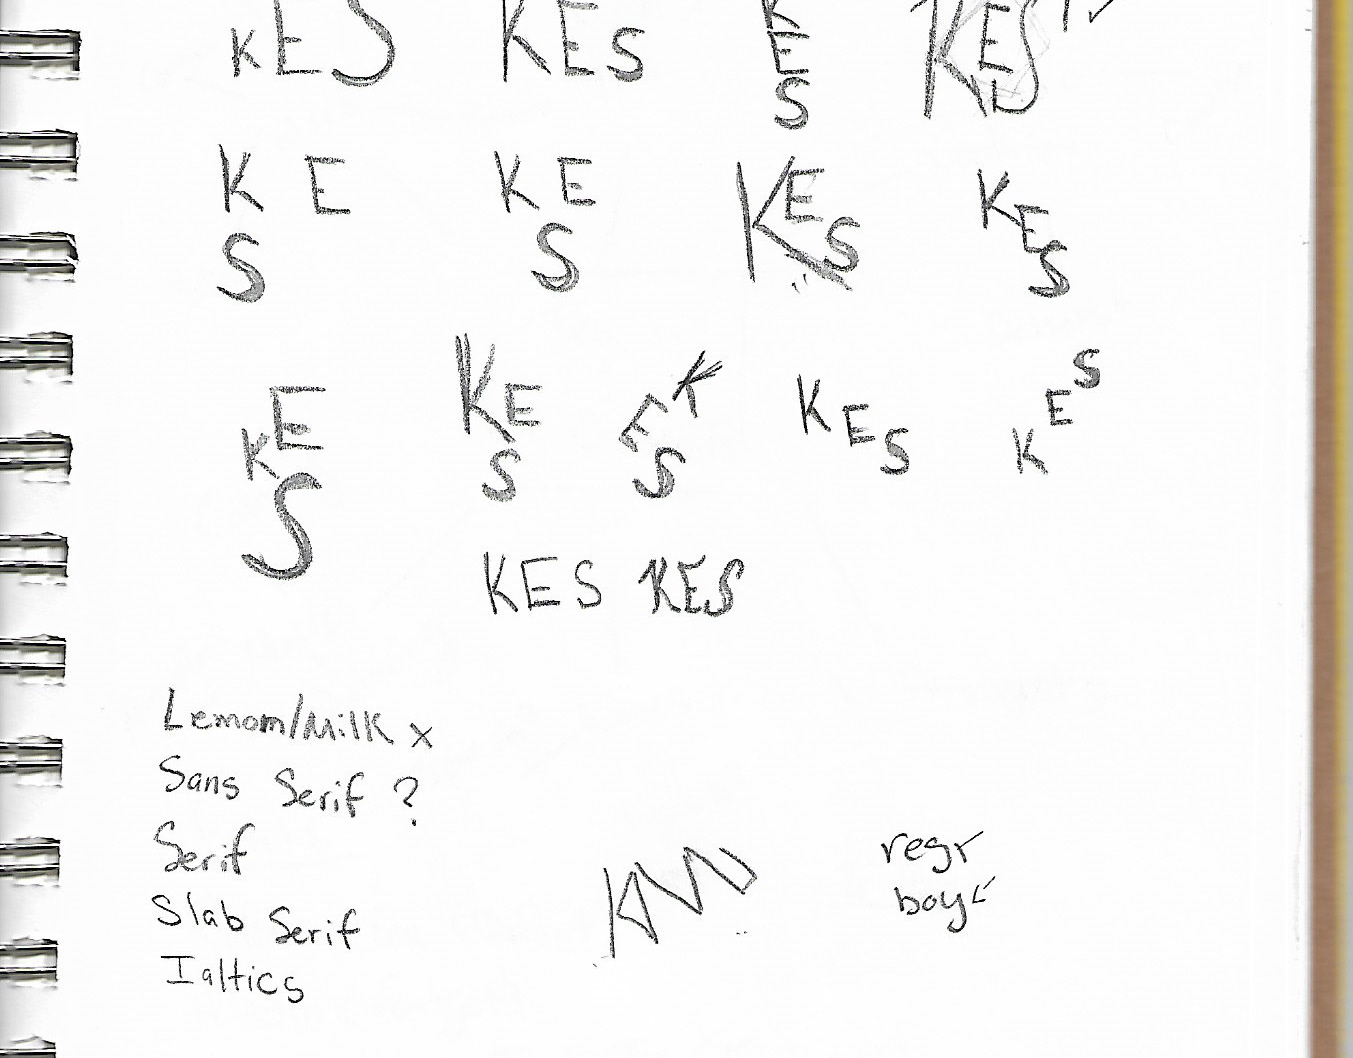 KES KES KES KES
KE
S
KE
S
KES
KES
KES
KE
S
KES
KES
KES
KES KES
Lemom/Milk x
Sans Serif ?
Serif
Slab Serif
Ialtics
regr
boy